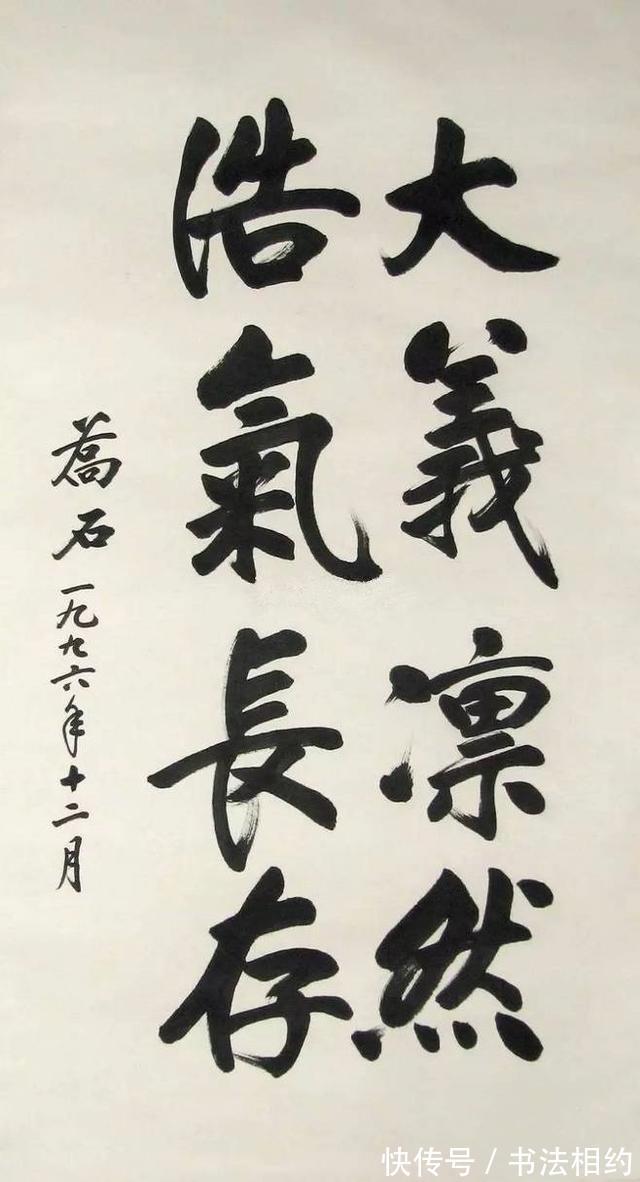 大義凛然
浩氣長存
喬石 一九九六年十二月
快传号/书法相约